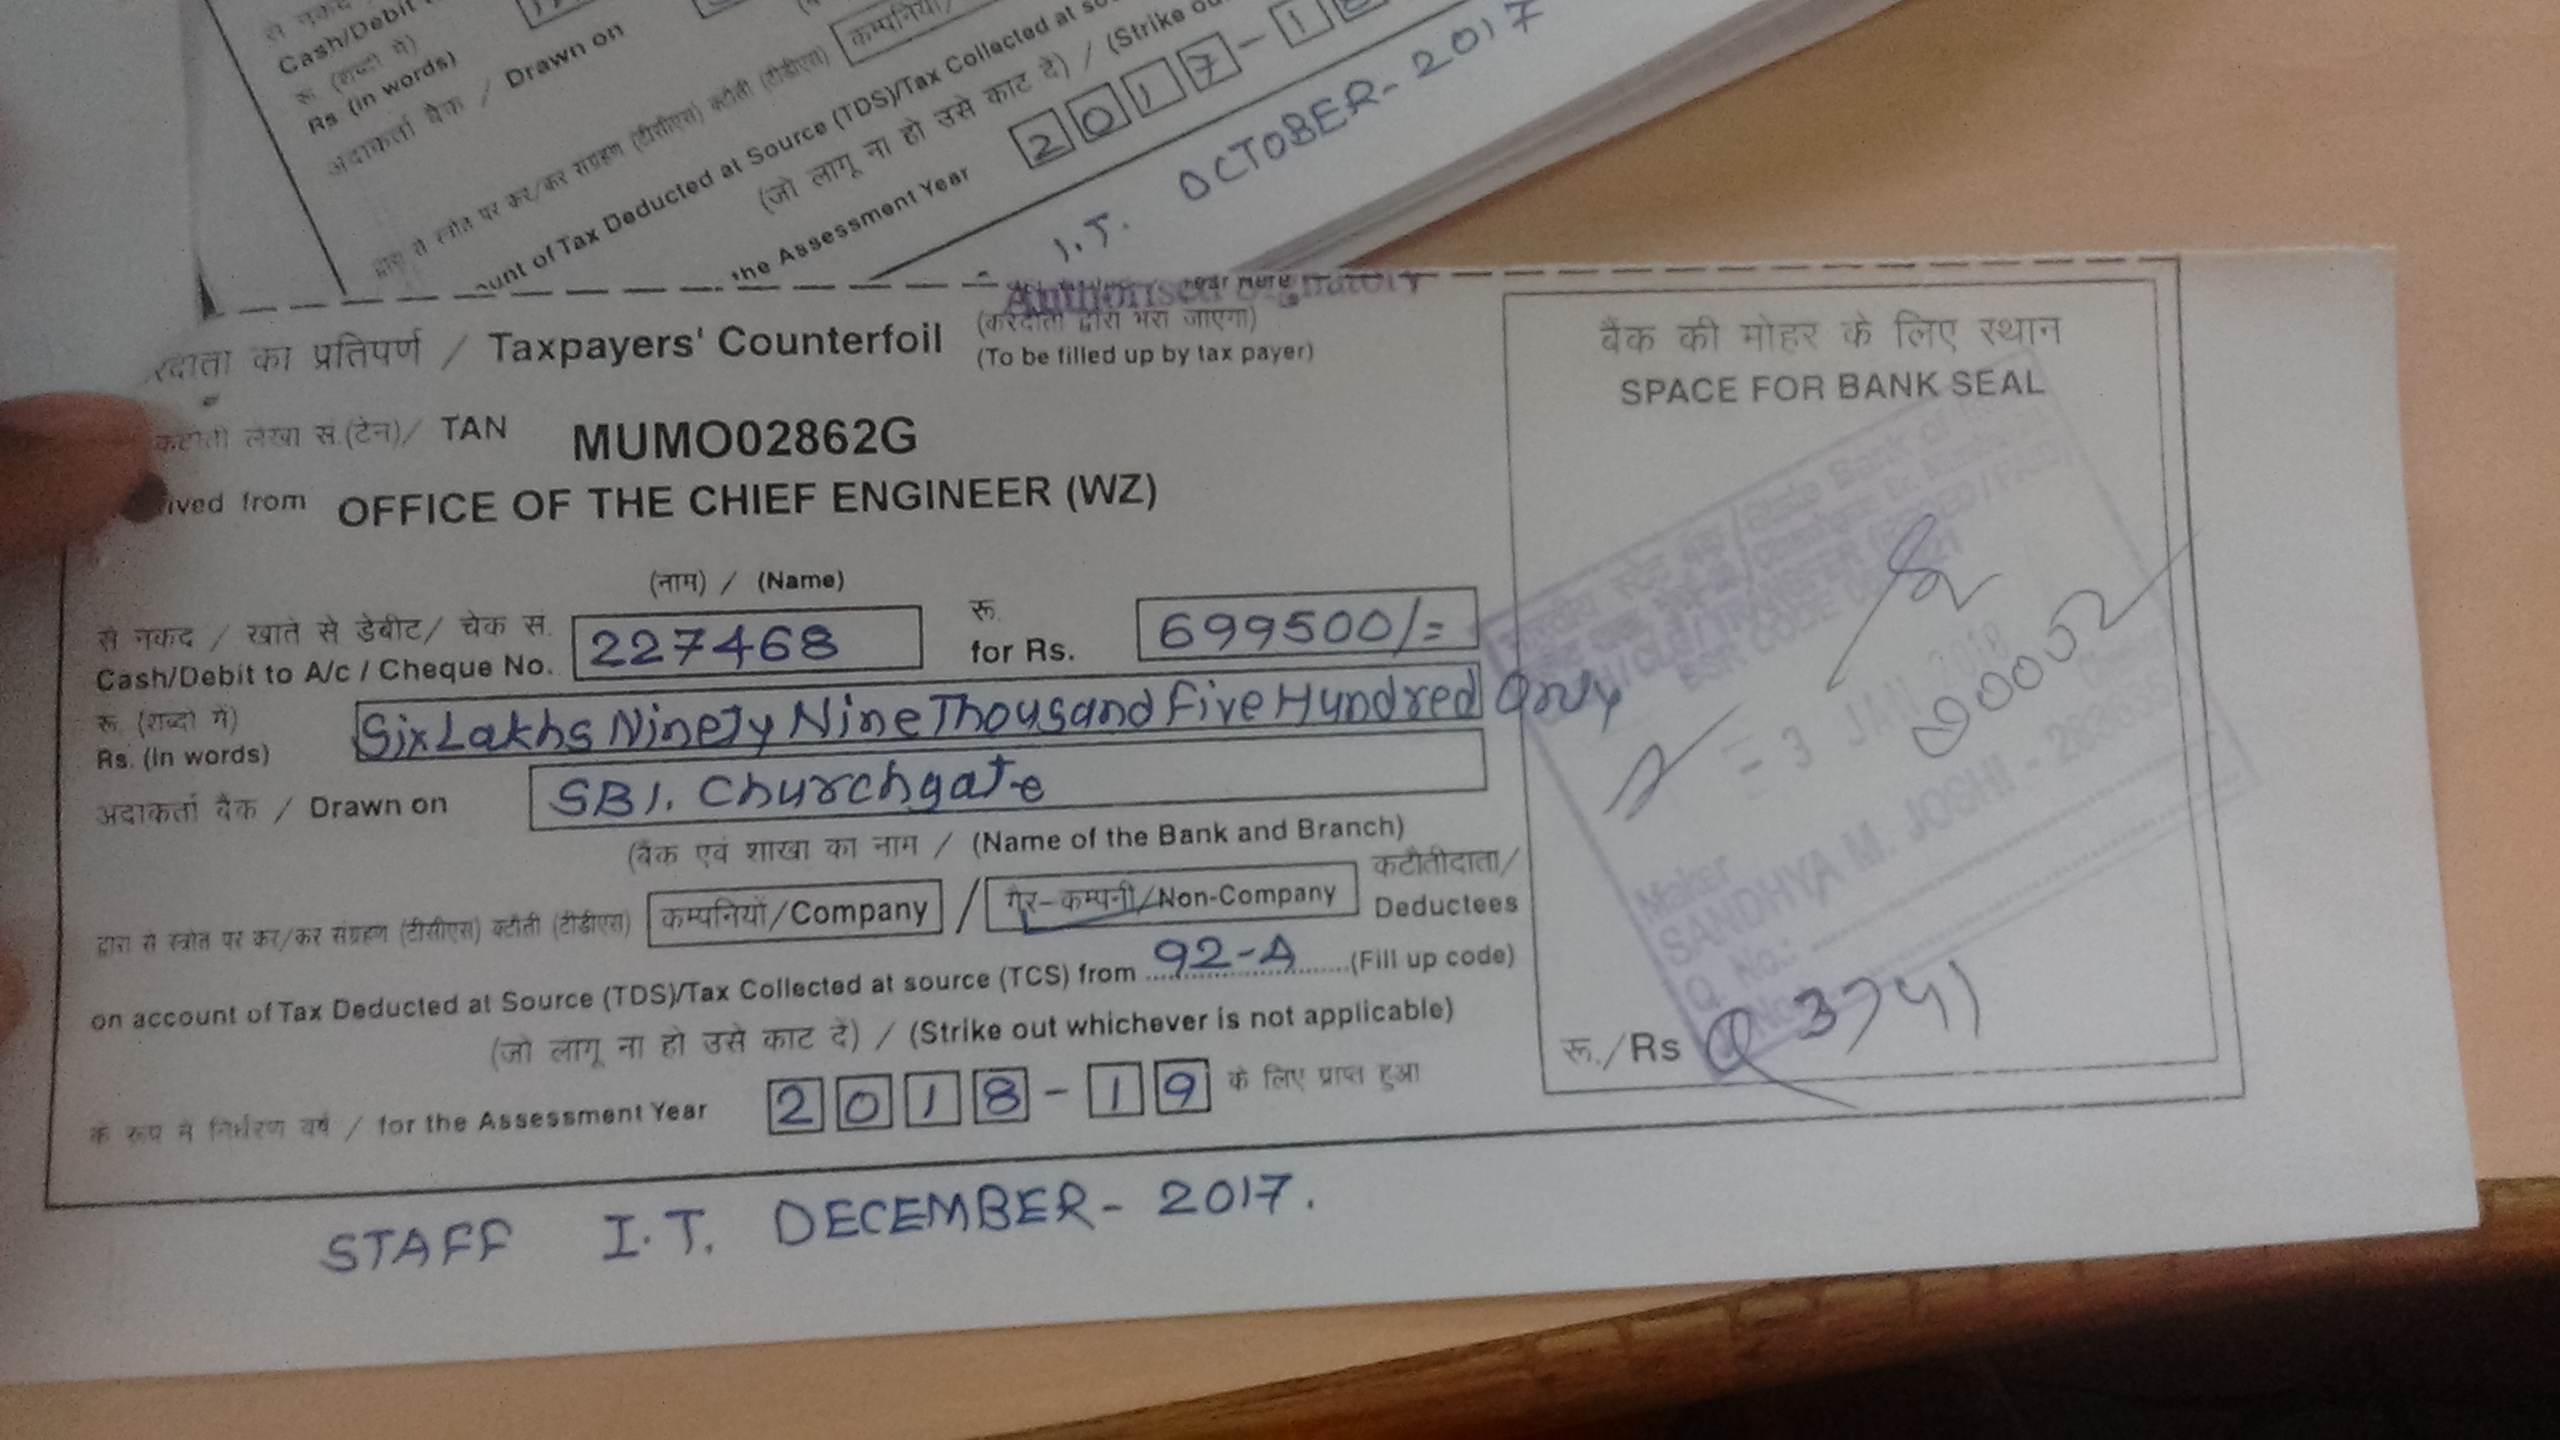 से नकद
Cash/Debit
रू (शब्दो में)
Rs (in words)
अदाकर्ता बैंक / Drawn on
कम्पनियां/
द्वारा से स्त्रोत पर कर/कर संग्रहण (टीसीएस) क्टौती (टीडीएस)
ount of Tax Deducted at Source (TDS)/Tax Collected at so
(जो लागू ना हो उसे काट दें) / (Strike ou
the Assessment Year 2017-18
I.T. OCTOBER-2017
Authorised Signatory
रदाता का प्रतिपर्ण / Taxpayers' Counterfoil (करदाता द्वारा भरा जाएगा)
(To be filled up by tax payer)
कटौती लेखा सं.(टेन)/ TAN MUMO02862G
ived from OFFICE OF THE CHIEF ENGINEER (WZ)
(नाम) / (Name)
से नकद / खाते से डेबीट/ चेक स. 227468 रू. 699500/=
Cash/Debit to A/c / Cheque No. for Rs.
रू (शब्दो में)
Rs. (in words) Six Lakhs Ninety Nine Thousand Five Hundred Only
अदाकर्ता बैंक / Drawn on SBI. Churchgate
(बैंक एवं शाखा का नाम / (Name of the Bank and Branch)
द्वारा से स्त्रोत पर कर/कर संग्रहण (टीसीएस) क्टौती (टीडीएस) कम्पनियों/Company / गैर-कम्पनी/Non-Company कटौतीदाता/
Deductees
on account of Tax Deducted at Source (TDS)/Tax Collected at source (TCS) from 92-A (Fill up code)
(जो लागू ना हो उसे काट दें) / (Strike out whichever is not applicable)
के रूप में निर्धरण वर्ष / for the Assessment Year 2018-19 के लिए प्राप्त हुआ
STAFF I.T. DECEMBER-2017.
बैंक की मोहर के लिए स्थान
SPACE FOR BANK SEAL
State Bank of
TRANSFER
BSR CODE
- 3 JAN 2018
00002
Maker
SANDHYA M. JOSHI -
Q. No.:
रू./Rs